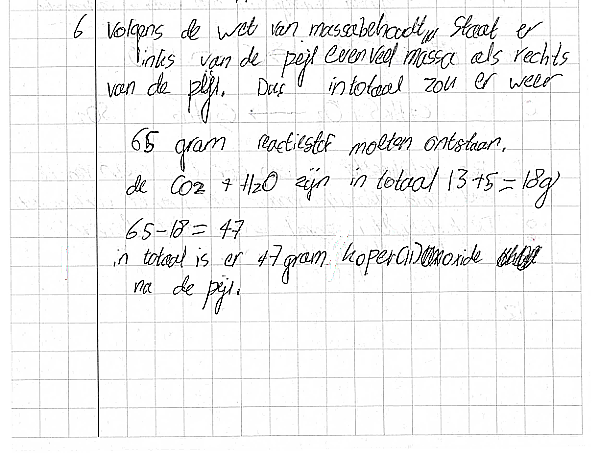 6 Volgens de wet van massabehoudt, staat er
links van de pijl evenveel massa als rechts
van de pijl. Dus in totaal zou er weer
65 gram reactiestof moeten ontstaan.
de CO2 + H2O zijn in totaal 13+5=18g
65-18=47
in totaal is er 47 gram koper(II)oxide
na de pijl.